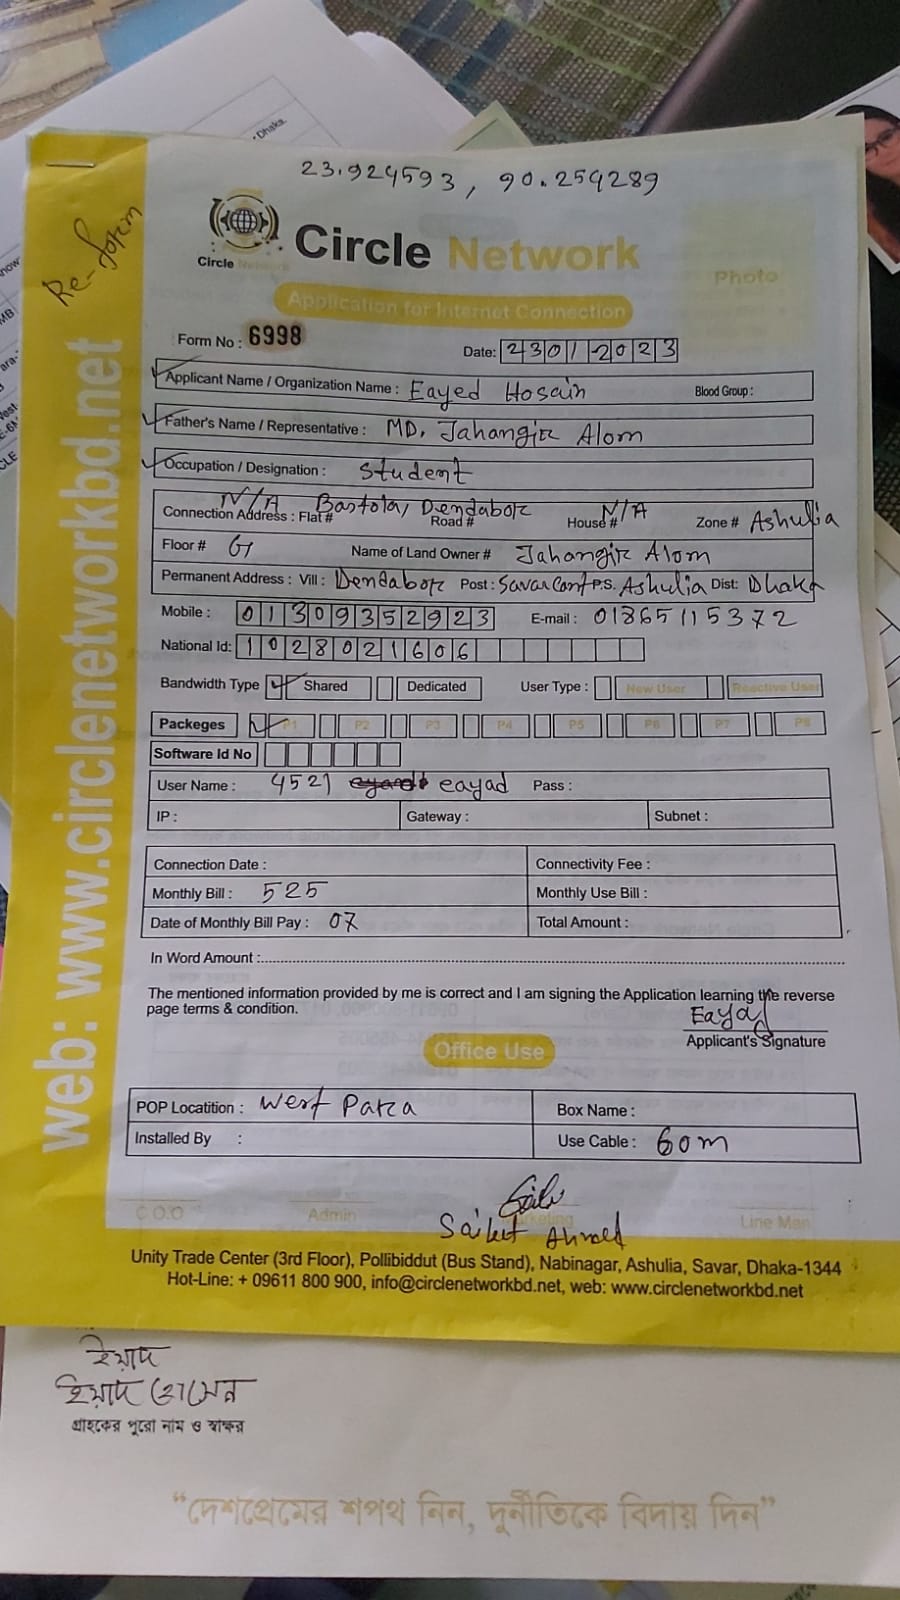 23.924593, 90.259289
Re-form
Circle Network
Circle Network
Photo
Application for Internet Connection
Form No : 6998
Date: 23012023
Applicant Name / Organization Name : Eayed Hosain Blood Group :
Father's Name / Representative : MD. Jahangir Alom
Occupation / Designation : Student
Connection Address : Flat # N/A Bastola, Dendabor Road # House # N/A Zone # Ashulia
Floor # G Name of Land Owner # Jahangir Alom
Permanent Address : Vill : Dendabor Post : Savar Cant P.S. Ashulia Dist: Dhaka
Mobile : 01309352923 E-mail : 01865115372
National Id: 1028021606
Bandwidth Type Shared Dedicated User Type : New User Reactive User
Packeges P1 P2 P3 P4 P5 P6 P7 P8
Software Id No
User Name : 4521 eayad Pass :
IP : Gateway : Subnet :
Connection Date : Connectivity Fee :
Monthly Bill : 525 Monthly Use Bill :
Date of Monthly Bill Pay : 07 Total Amount :
In Word Amount :
The mentioned information provided by me is correct and I am signing the Application learning the reverse
page terms & condition.
Eayad
Applicant's Signature
Office Use
POP Locatition : West Para Box Name :
Installed By : Use Cable : 60m
C O.O Admin Marketing Line Man
Saiket Ahmed
Unity Trade Center (3rd Floor), Pollibiddut (Bus Stand), Nabinagar, Ashulia, Savar, Dhaka-1344
Hot-Line: + 09611 800 900, info@circlenetworkbd.net, web: www.circlenetworkbd.net
web: www.circlenetworkbd.net
ইয়াদ
ইয়াদ হোসেন
গ্রাহকের পুরো নাম ও স্বাক্ষর
“দেশপ্রেমের শপথ নিন, দুর্নীতিকে বিদায় দিন”
Dhaka.